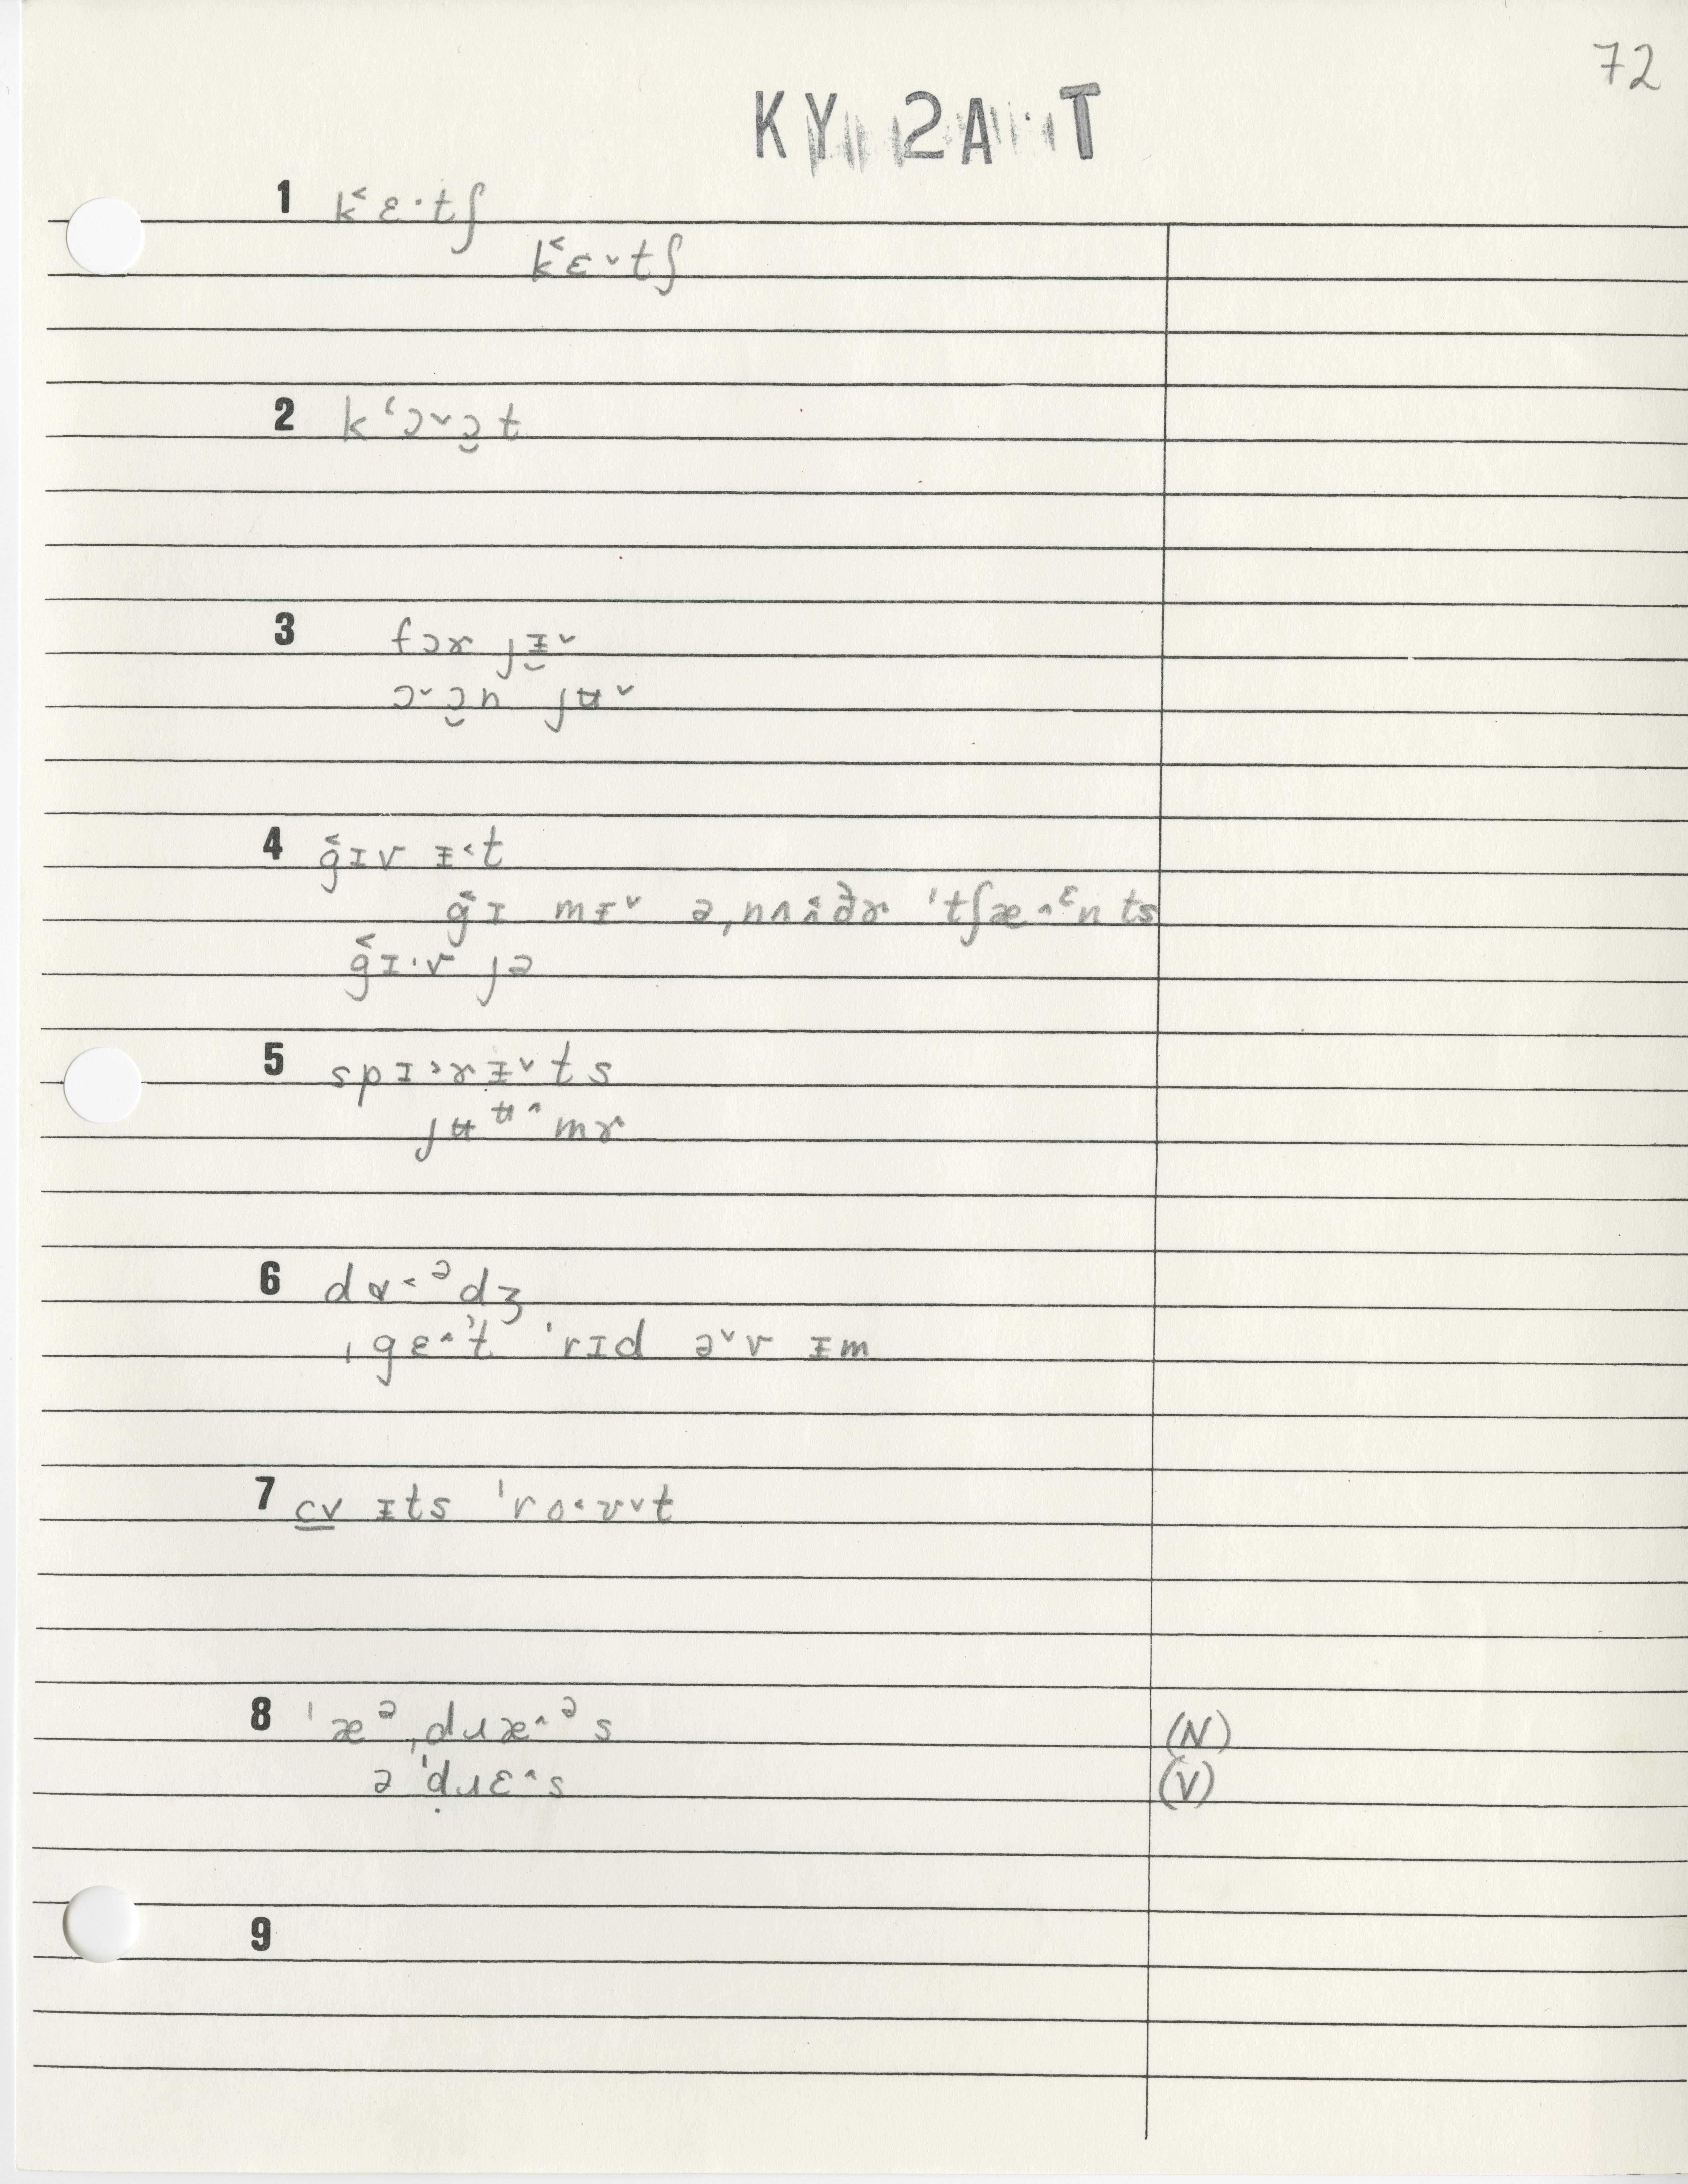 72
KY 2A T
1 k˂ɛ·tʃ
k˂ɛ˅tʃ
2 kʻɔ˅ɔ̯t
3 fɔɚ jᵻ̯˅
ɔ˅ɔ̯n jʉ˅
4 g˂ɪv ᵻ˂t
g˂ɪ mᵻ˅ ə,nʌ˄ðɚ 'tʃæ˄ᵋnts
g˂ɪ·v jə
5 spɪ˃ɚᵻ˅ts
jʉᶶ˄mɚ
6 dɑ˂ᵊdʒ
ˌgɛ˄tʻ 'rɪd ə˅v ᵻm
7 cv ᵻts 'rʌ˂ʊ˅t
8 'æᵊˌdɹæ˄ᵊs (N)
ə'dɹɛ˄s (V)
9